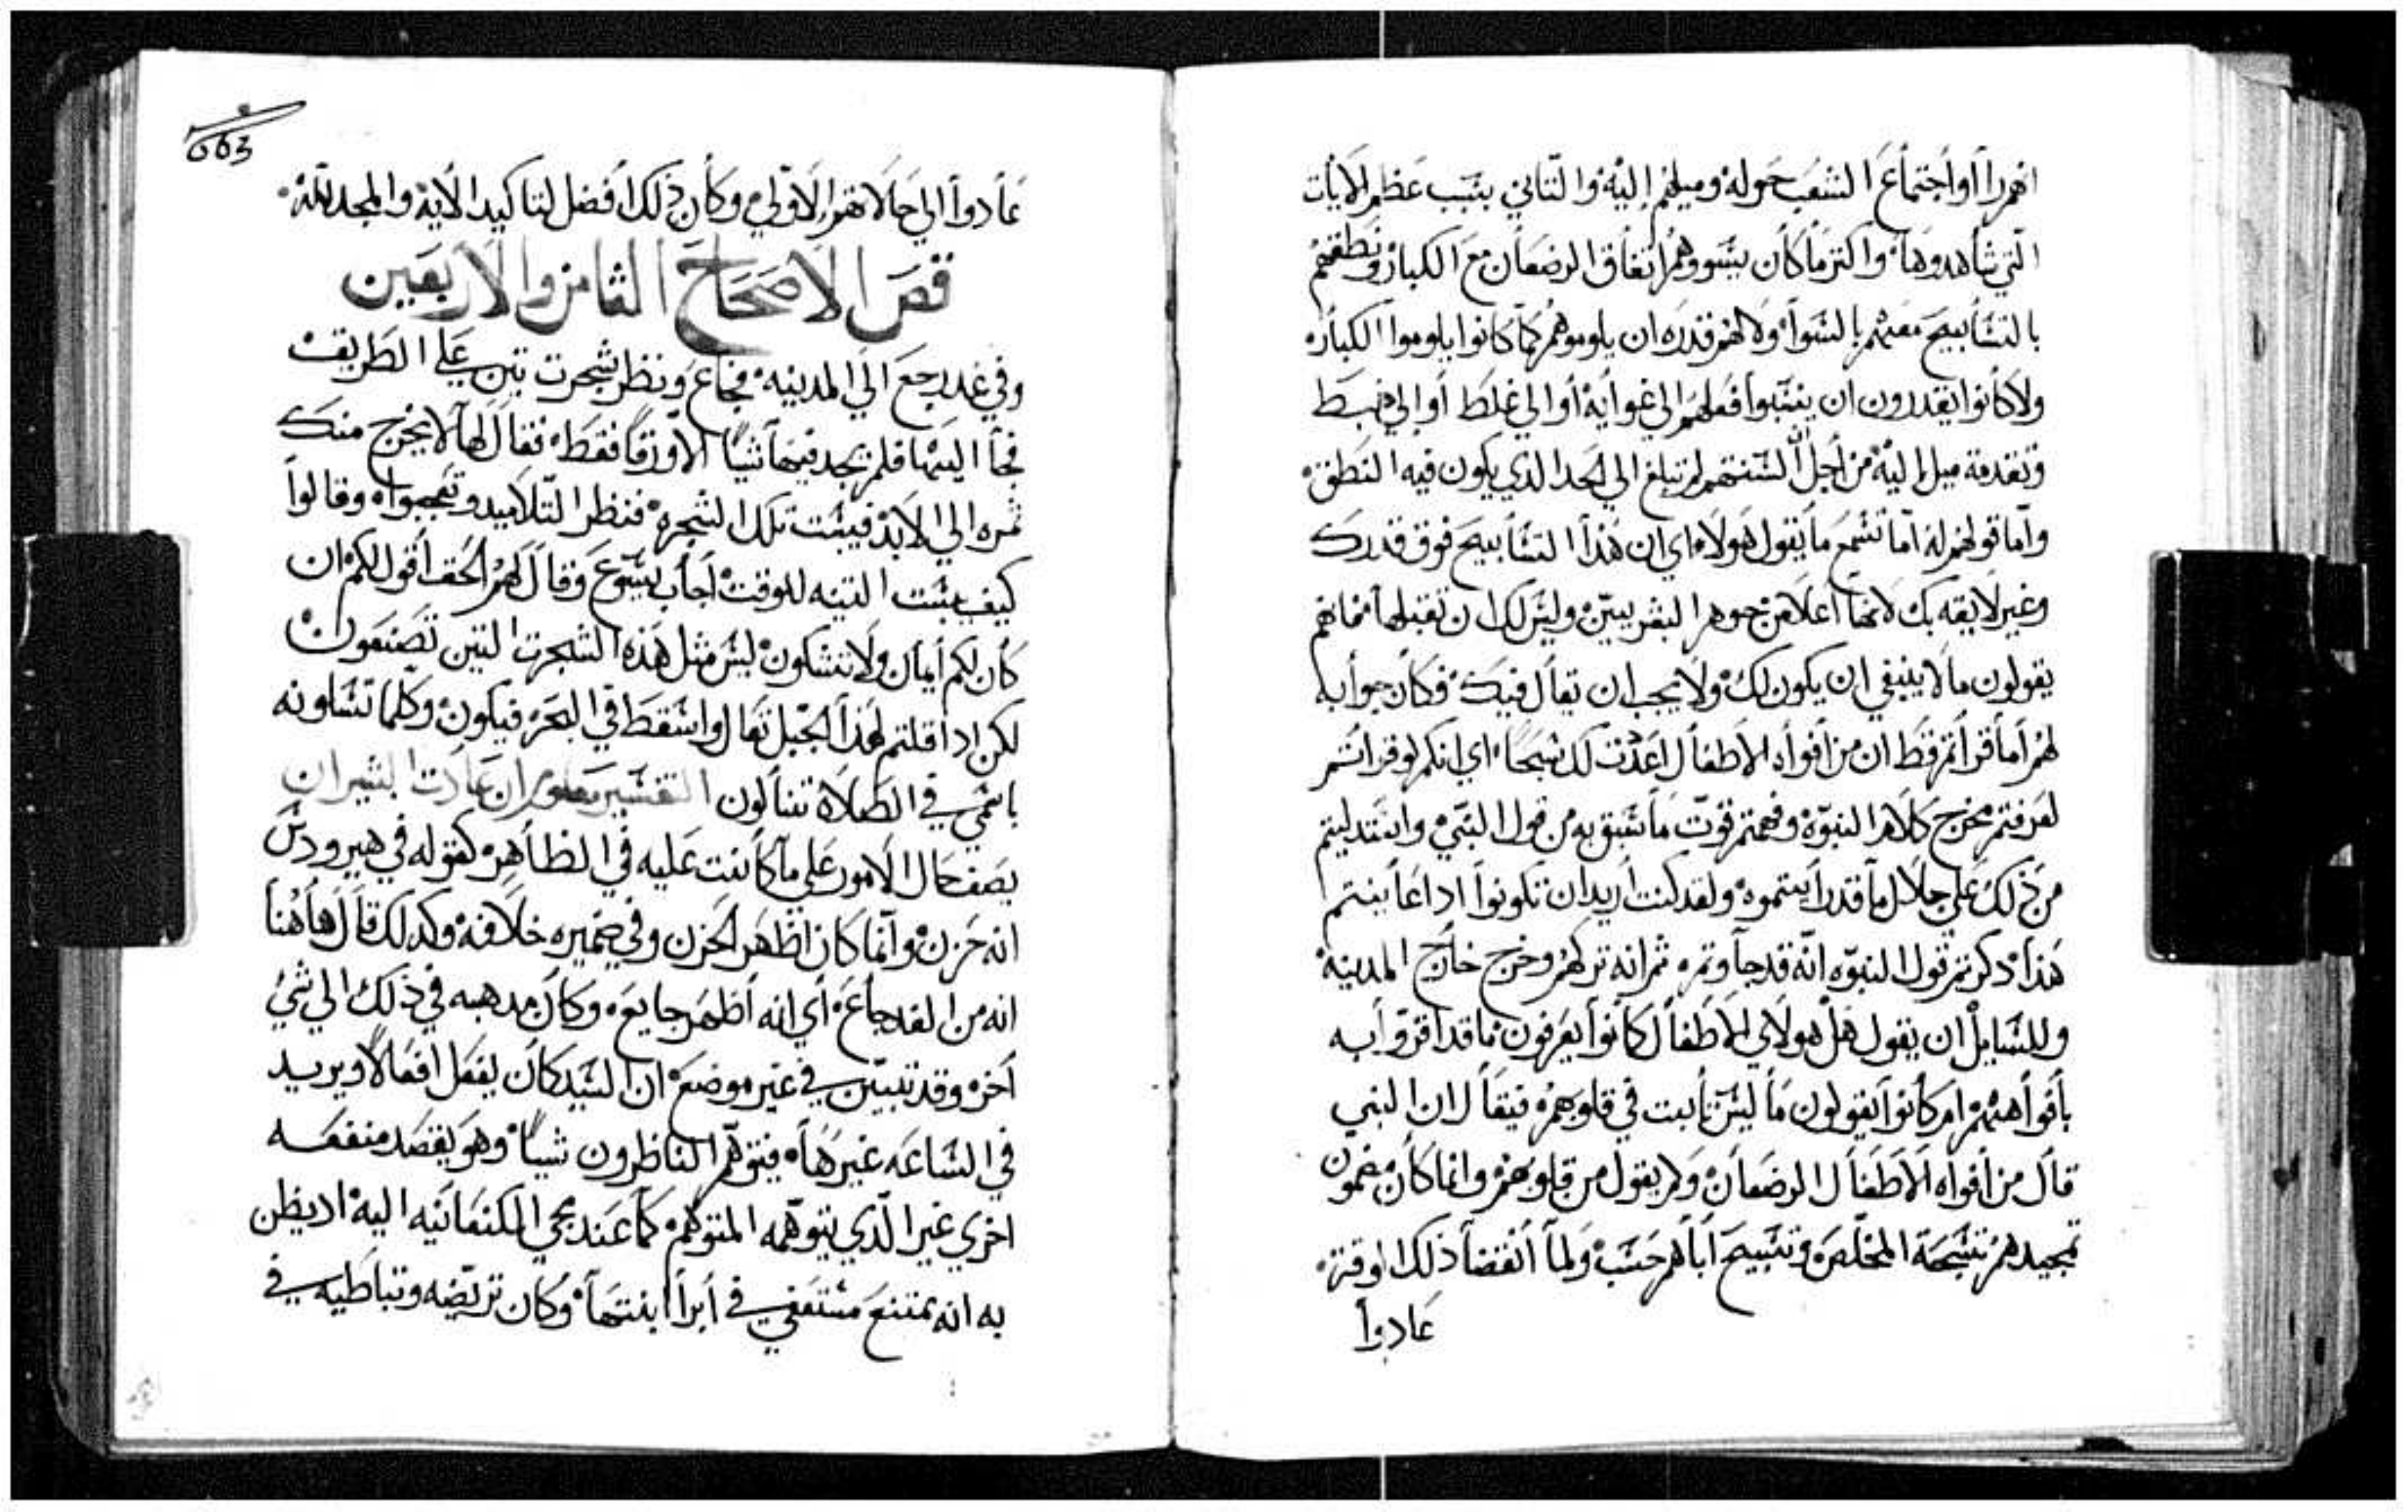 انهم راأوا اجتماع الشعب حوله وميلهم إليه والتاني بسبب عظم الايات
التي شاهدوها واكثر ما كان يسووهم اتفاق الرضعان مع الكبار ونطقهم
بالتسابيح معهم بالسوا ولا لهم قدره ان يلوموهم كما كانوا يلوموا الكباره
ولا كانوا يقدرون ان ينسبوا فعلهم الي غواية أو الي غلط أو إلي
وتقدمة ميل إليه من أجل أن السنتهم لم تبلغ الي الحد الذي يكون فيه النطق
وأما قولهم له أما تسمع ما يقول هولاء اي ان هذا التسابيح فوق قدرك
وغير لايقه بك لانها أعلا من جوهر البشريين وليس لك ان تقبلها فانهم
يقولون ما لا ينبغي ان يكون لك ولا يجب ان يقال فيك فكان جوابه
لهم أما قراتم قط ان من أفواه الاطفال اعددت لك سبحا اي انكم لو قراتم
لعرفتم مخرج كلام النبوة وفهمتم قوت ما سبق به من قول النبي واستدليتم
من ذلك علي جلال ما قد رأيتموه ولقد كنت أريد ان تكونوا اداعاينتم
هذا دكرتم قول النبوه انه قد جا وتم ثم انه تركهم وخرج خارج المدينة
وللسايل ان يقول هل هولاي الاطفال كانوا يعرفون ما قد اقروا به
بأفواههم ام كانوا يقولون ما ليس ثابت في قلوبهم فيقال ان النبي
قال من أفواه الاطفال الرضعان ولم يقول من قلوبهم وانما كان مضمون
تمجيدهم تسبحة المخلص وتسبيح أباهم حسب ولما انقضا ذلك الوقت
عادوا
663
عادوا الي حالاتهم الاولي وكان ذلك أفضل لتاكيد الاية والمجد لله
فص الاصحاح الثامن والاربعين
وفي غد رجع الي المدينه فجاع ونظر شجرت تين علي الطريق
فجا اليها فلم يجد فيها شيا الا ورقا فقط فقال لها لا يخرج منك
ثمره الي الابد فيبست تلك الشجره فنظر التلاميد وتعجبوا وقالوا
كيف يبست التينه للوقت أجاب يسوع وقال لهم الحق أقول لكم ان
كان لكم أيمان ولا تشكون ليس مثل هذه الشجرت التين تصنعون
لكن ادا قلتم لهذا الجبل تعال واسقط في البحر فيكون وكلما تسالونه
باسمي في الصلاة تنالون التفسير معلوم ان عادت البشيران
يصف حال الامور علي ما كانت عليه في الظاهر كقوله في هيرودس
انه حزن وانما كان اظهر الحزن وفي ضميره خلافه وكدلك قال هاهنا
انه من الغد جاع أي انه أظهر جايع وكان مدهبه في ذلك الي شي
أخر وقد تبين في غير موضع ان السيد كان يفعل افعالا ويريد
في الساعه غيرها فيتوهم الناظرون شيا وهو يقصد منفعه
اخري غير الذي يتوهمه المتوهم كما عند مجي الكنعانيه اليه اد يظن
به انه يمتنع مستعفي في أبرا ابنتها وكان تربصه وتباطيه في